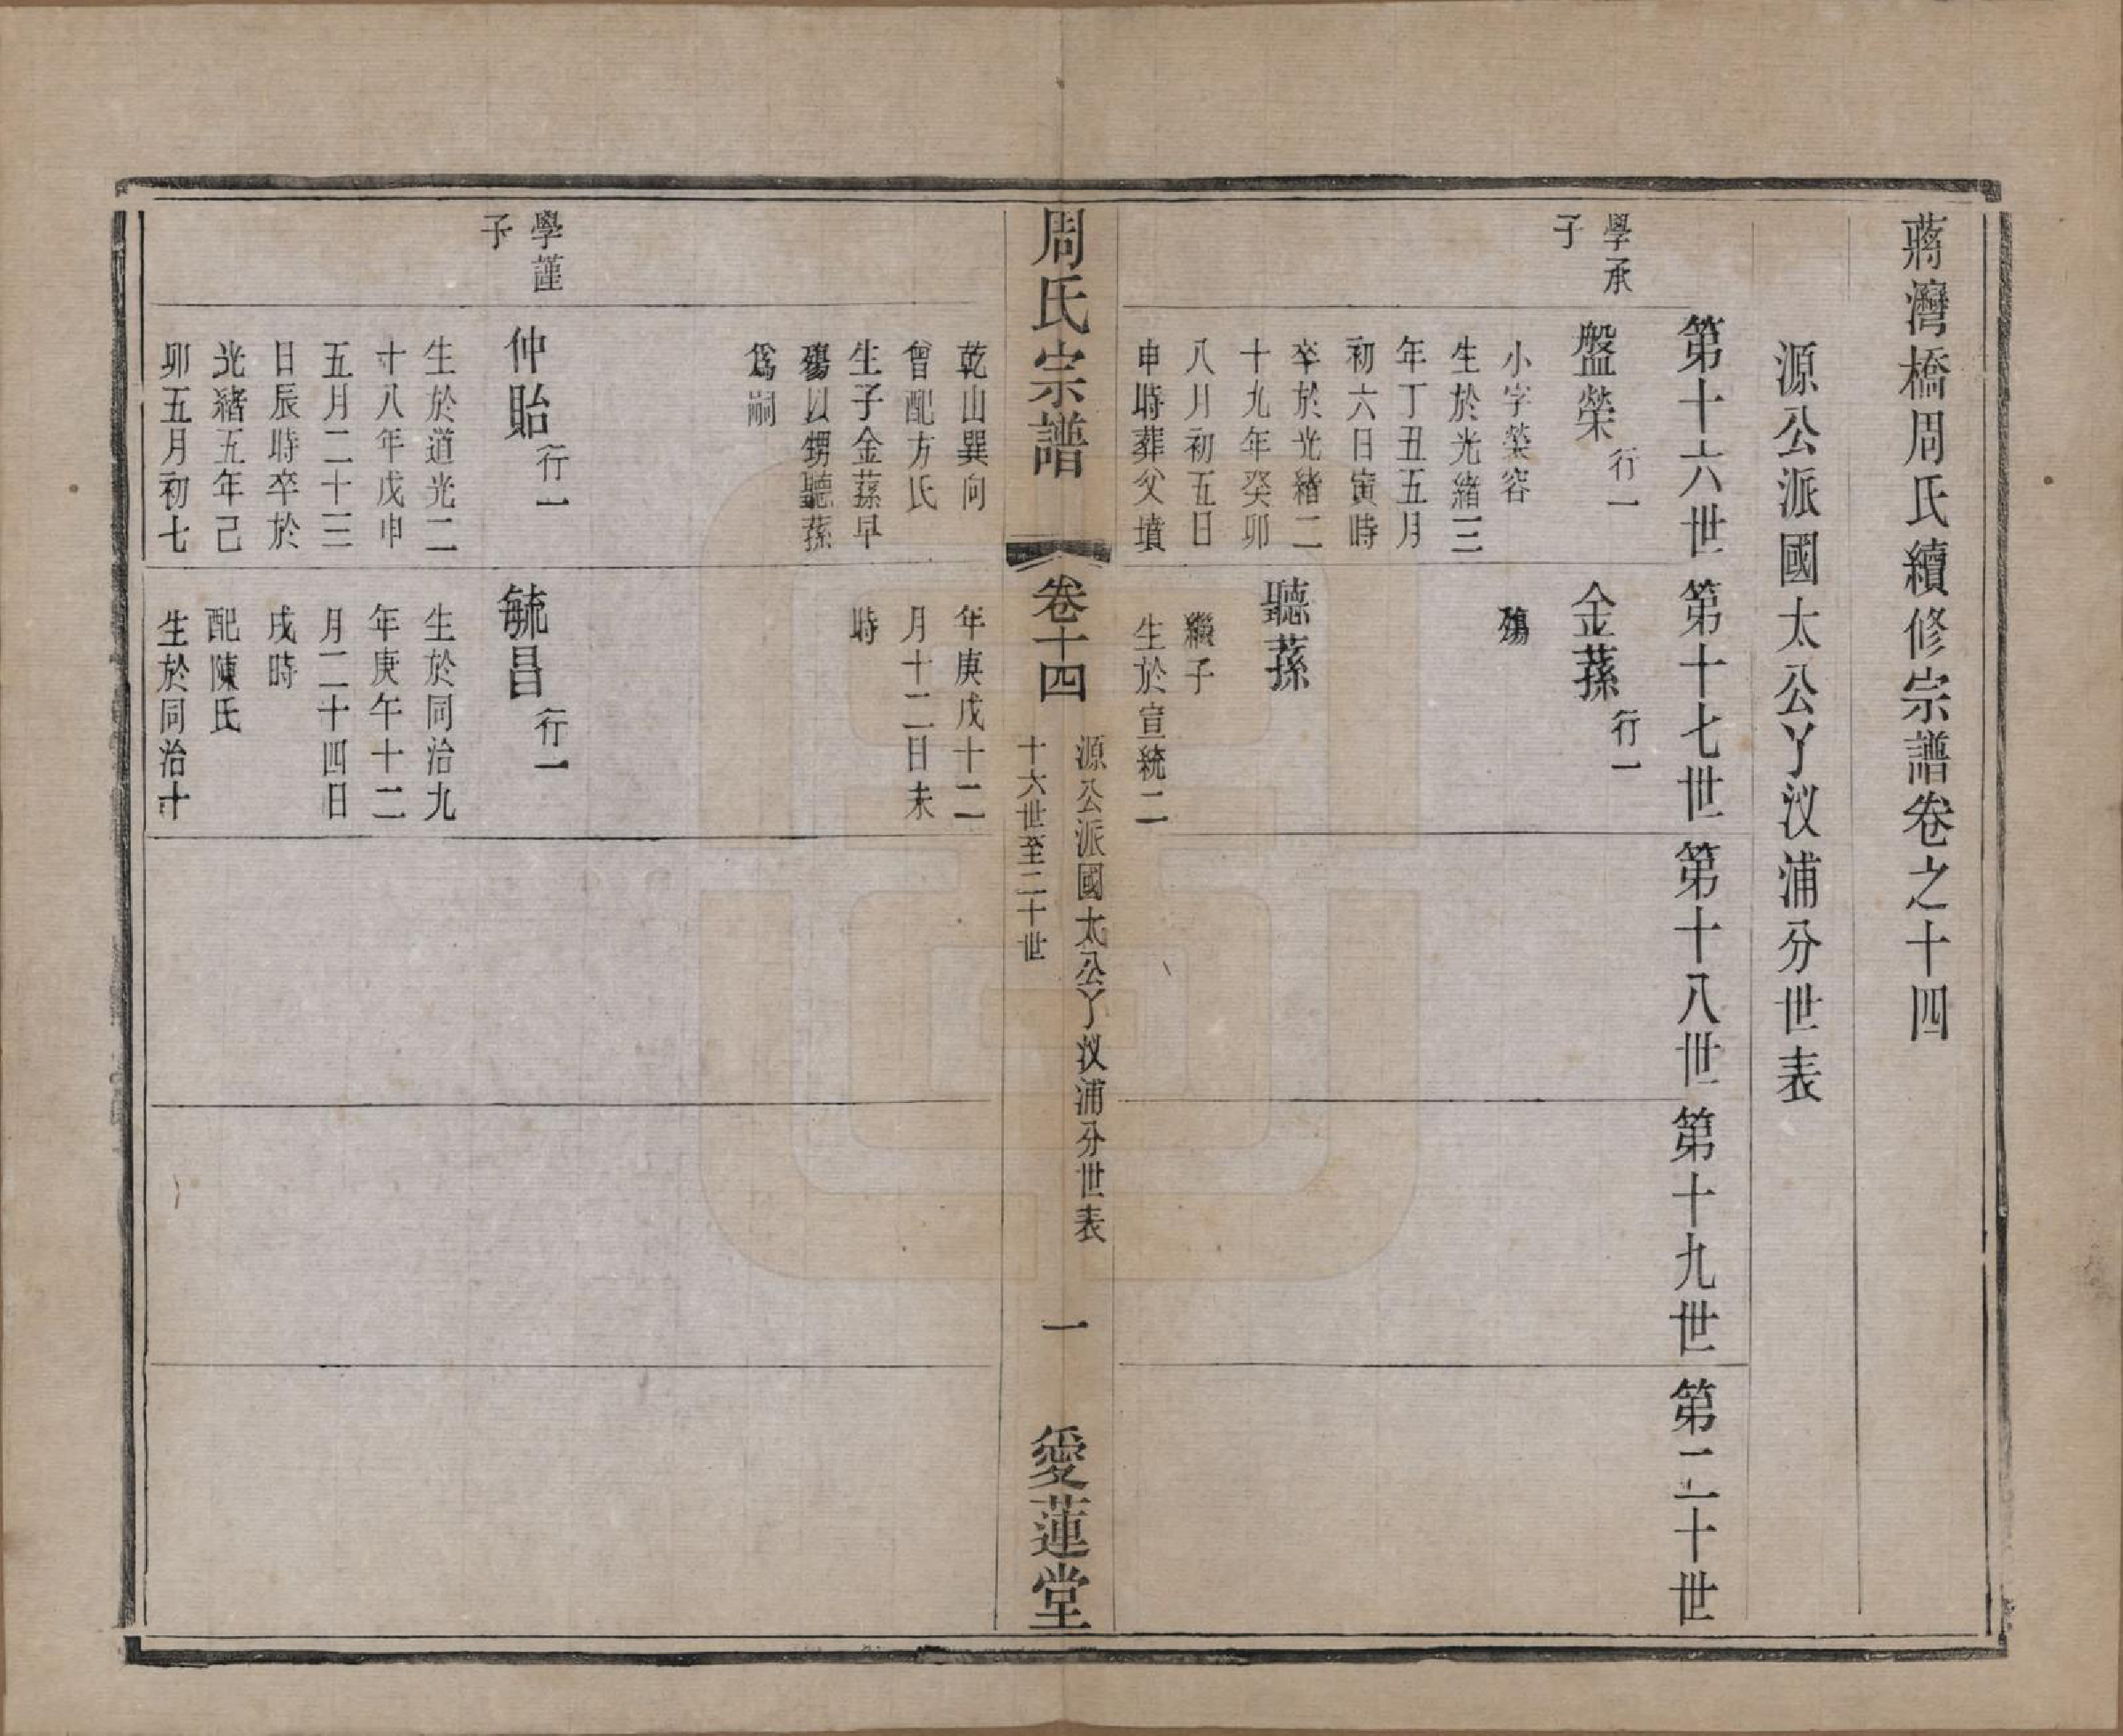 蔣灣橋周氏續修宗譜卷之十四
源公派國太公丫汊浦分世表
第十六世
第十七世
第十八世
第十九世
第二十世
學承
子
盤榮行一
小字榮容
生於光緒三
年丁丑五月
初六日寅時
卒於光緒二
十九年癸卯
八月初五日
申時葬父墳
金蓀行一
殤
聽蓀
繼子
生於宣統二
周氏宗譜
卷十四
源公派國太公丫汊浦分世表
十六世至二十世
一
愛蓮堂
乾山巽向
曾配方氏
生子金蓀早
殤以甥聽蓀
爲嗣
年庚戌十二
月十二日未
時
學謹
子
仲貽行一
生於道光二
十八年戊申
五月二十三
日辰時卒於
光緒五年己
卯五月初七
毓昌行一
生於同治九
年庚午十二
月二十四日
戌時
配陳氏
生於同治十